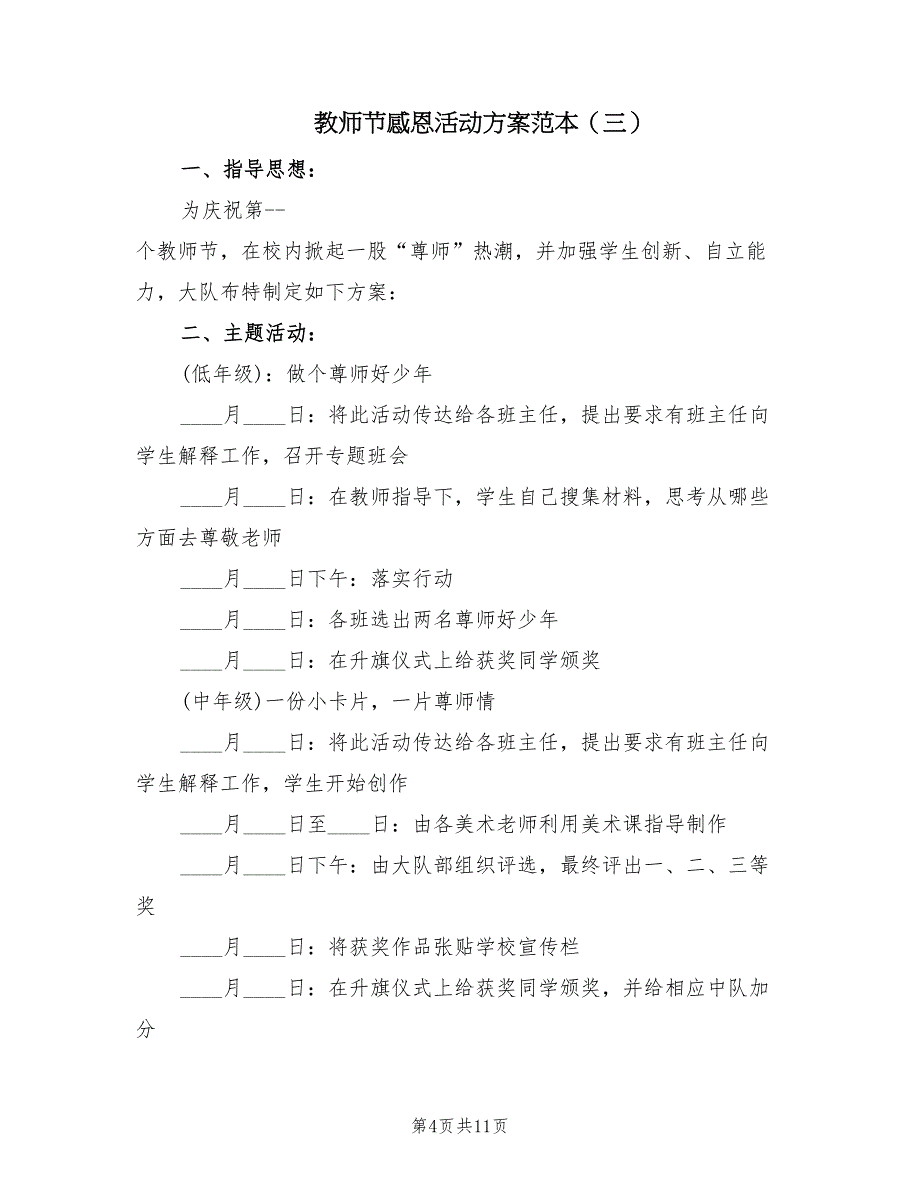 教师节感恩活动方案范本（三）
一、指导思想：
为庆祝第--
个教师节，在校内掀起一股“尊师”热潮，并加强学生创新、自立能
力，大队布特制定如下方案：
二、主题活动：
(低年级)：做个尊师好少年
____月____日：将此活动传达给各班主任，提出要求有班主任向
学生解释工作，召开专题班会
____月____日：在教师指导下，学生自己搜集材料，思考从哪些
方面去尊敬老师
____月____日下午：落实行动
____月____日：各班选出两名尊师好少年
____月____日：在升旗仪式上给获奖同学颁奖
(中年级)一份小卡片，一片尊师情
____月____日：将此活动传达给各班主任，提出要求有班主任向
学生解释工作，学生开始创作
____月____日至____日：由各美术老师利用美术课指导制作
____月____日下午：由大队部组织评选，最终评出一、二、三等
奖
____月____日：将获奖作品张贴学校宣传栏
____月____日：在升旗仪式上给获奖同学颁奖，并给相应中队加
分
第4页共11页